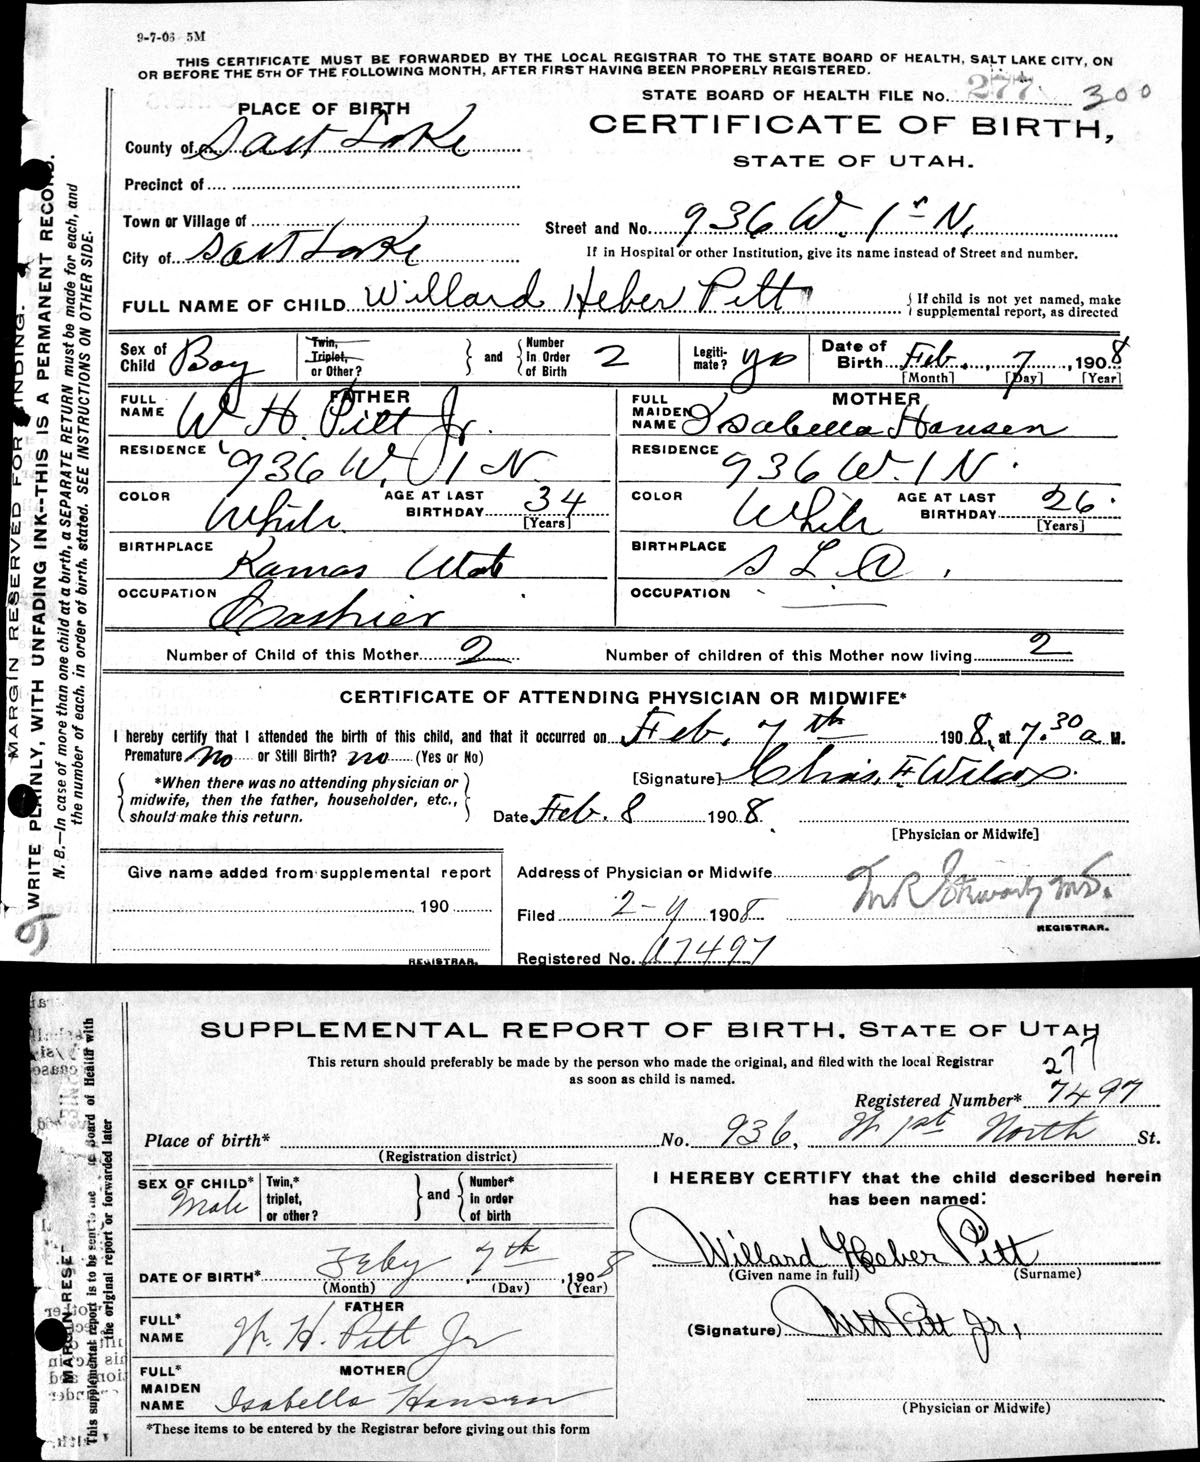 9-7-06 5M
THIS CERTIFICATE MUST BE FORWARDED BY THE LOCAL REGISTRAR TO THE STATE BOARD OF HEALTH, SALT LAKE CITY, ON
OR BEFORE THE 5TH OF THE FOLLOWING MONTH, AFTER FIRST HAVING BEEN PROPERLY REGISTERED.
STATE BOARD OF HEALTH FILE No. 277 300
PLACE OF BIRTH
CERTIFICATE OF BIRTH,
STATE OF UTAH.
County of Salt Lake
Precinct of
Town or Village of
Street and No. 936 W. 1st N.
City of Salt Lake
If in Hospital or other Institution, give its name instead of Street and number.
FULL NAME OF CHILD Willard Heber Pitt
{ If child is not yet named, make
supplemental report, as directed
Sex of Child Boy
Twin, Triplet, or Other? } and { Number in Order of Birth 2
Legiti-mate? yes
Date of Birth Feb. 7, 1908
[Month] [Day] [Year]
FATHER
FULL NAME W. H. Pitt Jr.
RESIDENCE 936 W. 1 N
COLOR White
AGE AT LAST BIRTHDAY 34 [Years]
BIRTHPLACE Kamas Utah
OCCUPATION Cashier
MOTHER
FULL MAIDEN NAME Isabella Hansen
RESIDENCE 936 W. 1 N.
COLOR White
AGE AT LAST BIRTHDAY 26 [Years]
BIRTHPLACE S L C.
OCCUPATION
Number of Child of this Mother 2
Number of children of this Mother now living 2
CERTIFICATE OF ATTENDING PHYSICIAN OR MIDWIFE*
I hereby certify that I attended the birth of this child, and that it occurred on Feb. 7th 1908, at 7.30 a M.
Premature no or Still Birth? no (Yes or No)
{ *When there was no attending physician or
midwife, then the father, householder, etc.,
should make this return. }
[Signature] Chas. F. Wilcox.
Date Feb. 8 1908.
[Physician or Midwife]
Give name added from supplemental report
190
REGISTRAR.
Address of Physician or Midwife
Filed 2-9 1908
M.D.
REGISTRAR.
Registered No. 7497
MARGIN RESERVED FOR BINDING.
WRITE PLAINLY, WITH UNFADING INK--THIS IS A PERMANENT RECORD.
N. B.—In case of more than one child at a birth, a SEPARATE RETURN must be made for each, and
the number of each, in order of birth, stated. SEE INSTRUCTIONS ON OTHER SIDE.
SUPPLEMENTAL REPORT OF BIRTH, STATE OF UTAH
This return should preferably be made by the person who made the original, and filed with the local Registrar
as soon as child is named.
277
Registered Number* 7497
Place of birth* No. 936, W 1st North St.
(Registration district)
SEX OF CHILD* Male
Twin,* triplet, or other? } and { Number* in order of birth
DATE OF BIRTH* Feby 7th, 1908
(Month) (Day) (Year)
FATHER
FULL* NAME W. H. Pitt Jr
MOTHER
FULL* MAIDEN NAME Isabella Hansen
*These items to be entered by the Registrar before giving out this form
I HEREBY CERTIFY that the child described herein
has been named:
Willard Heber Pitt
(Given name in full) (Surname)
(Signature) W H Pitt Jr.
(Physician or Midwife)
MARGIN RESE
This supplemental report is to be sent to the Board of Health with
the original report or forwarded later